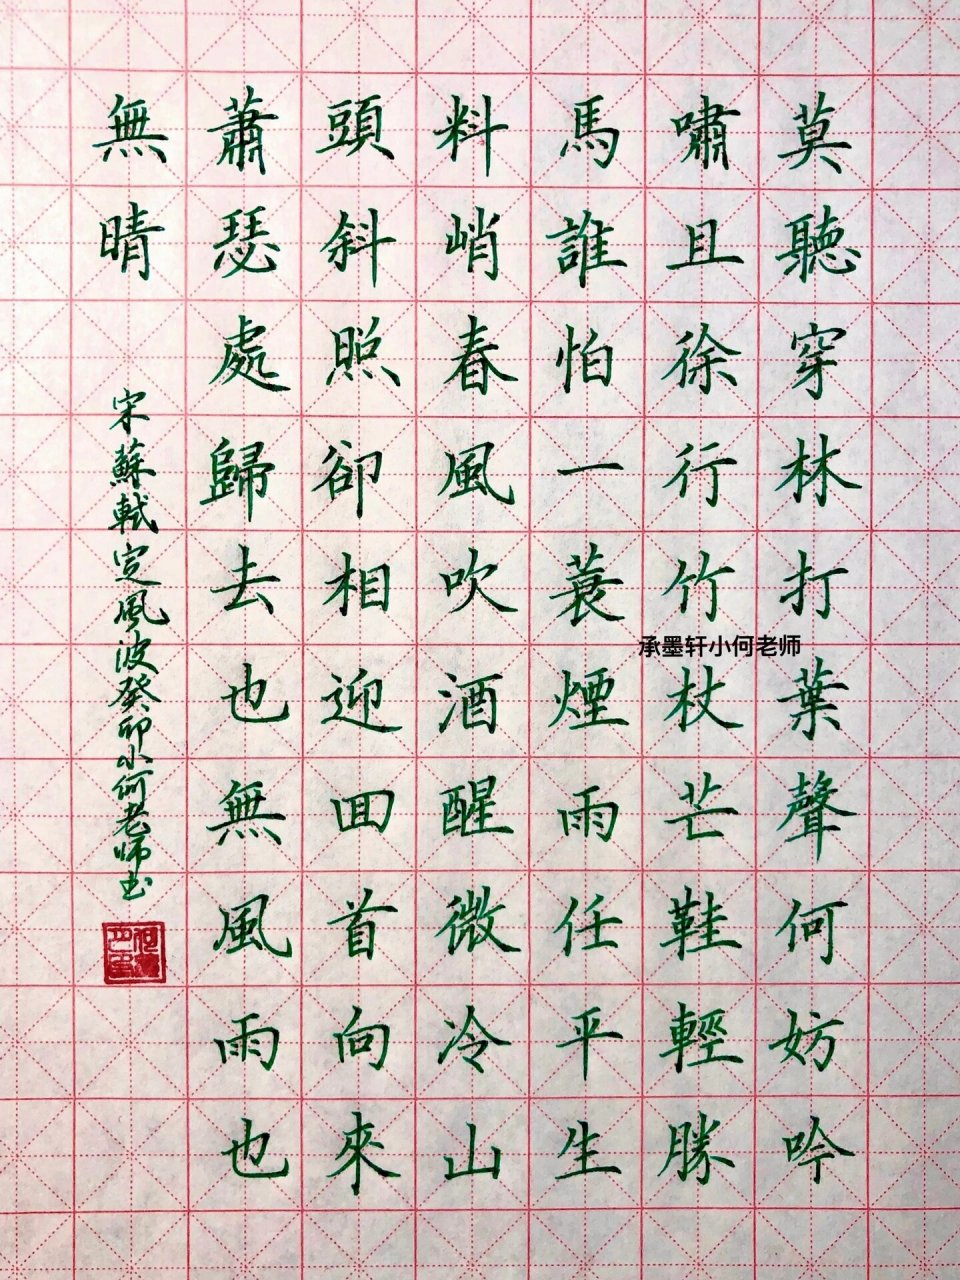 莫聽穿林打葉聲何妨吟
嘯且徐行竹杖芒鞋輕勝
馬誰怕一蓑煙雨任平生
料峭春風吹酒醒微冷山
頭斜照卻相迎回首向來
蕭瑟處歸去也無風雨也
無晴
宋蘇軾定風波癸卯小何老师书
承墨轩小何老师